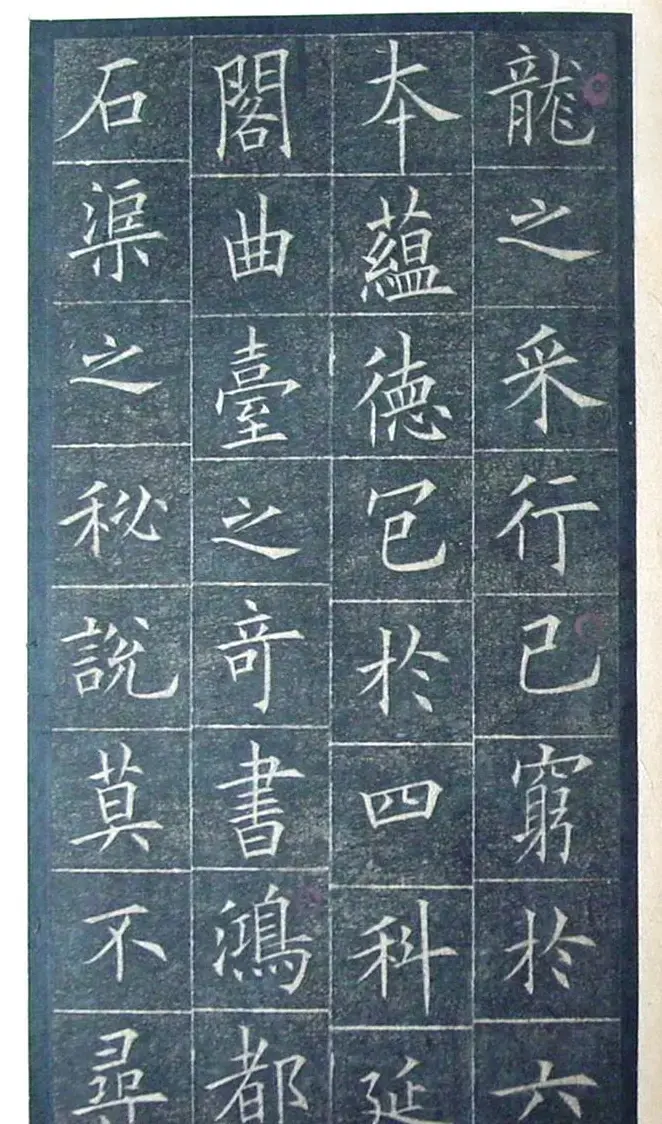 龍之采行己窮於六
本蘊德包於四科延
閣曲臺之奇書鴻都
石渠之秘說莫不尋